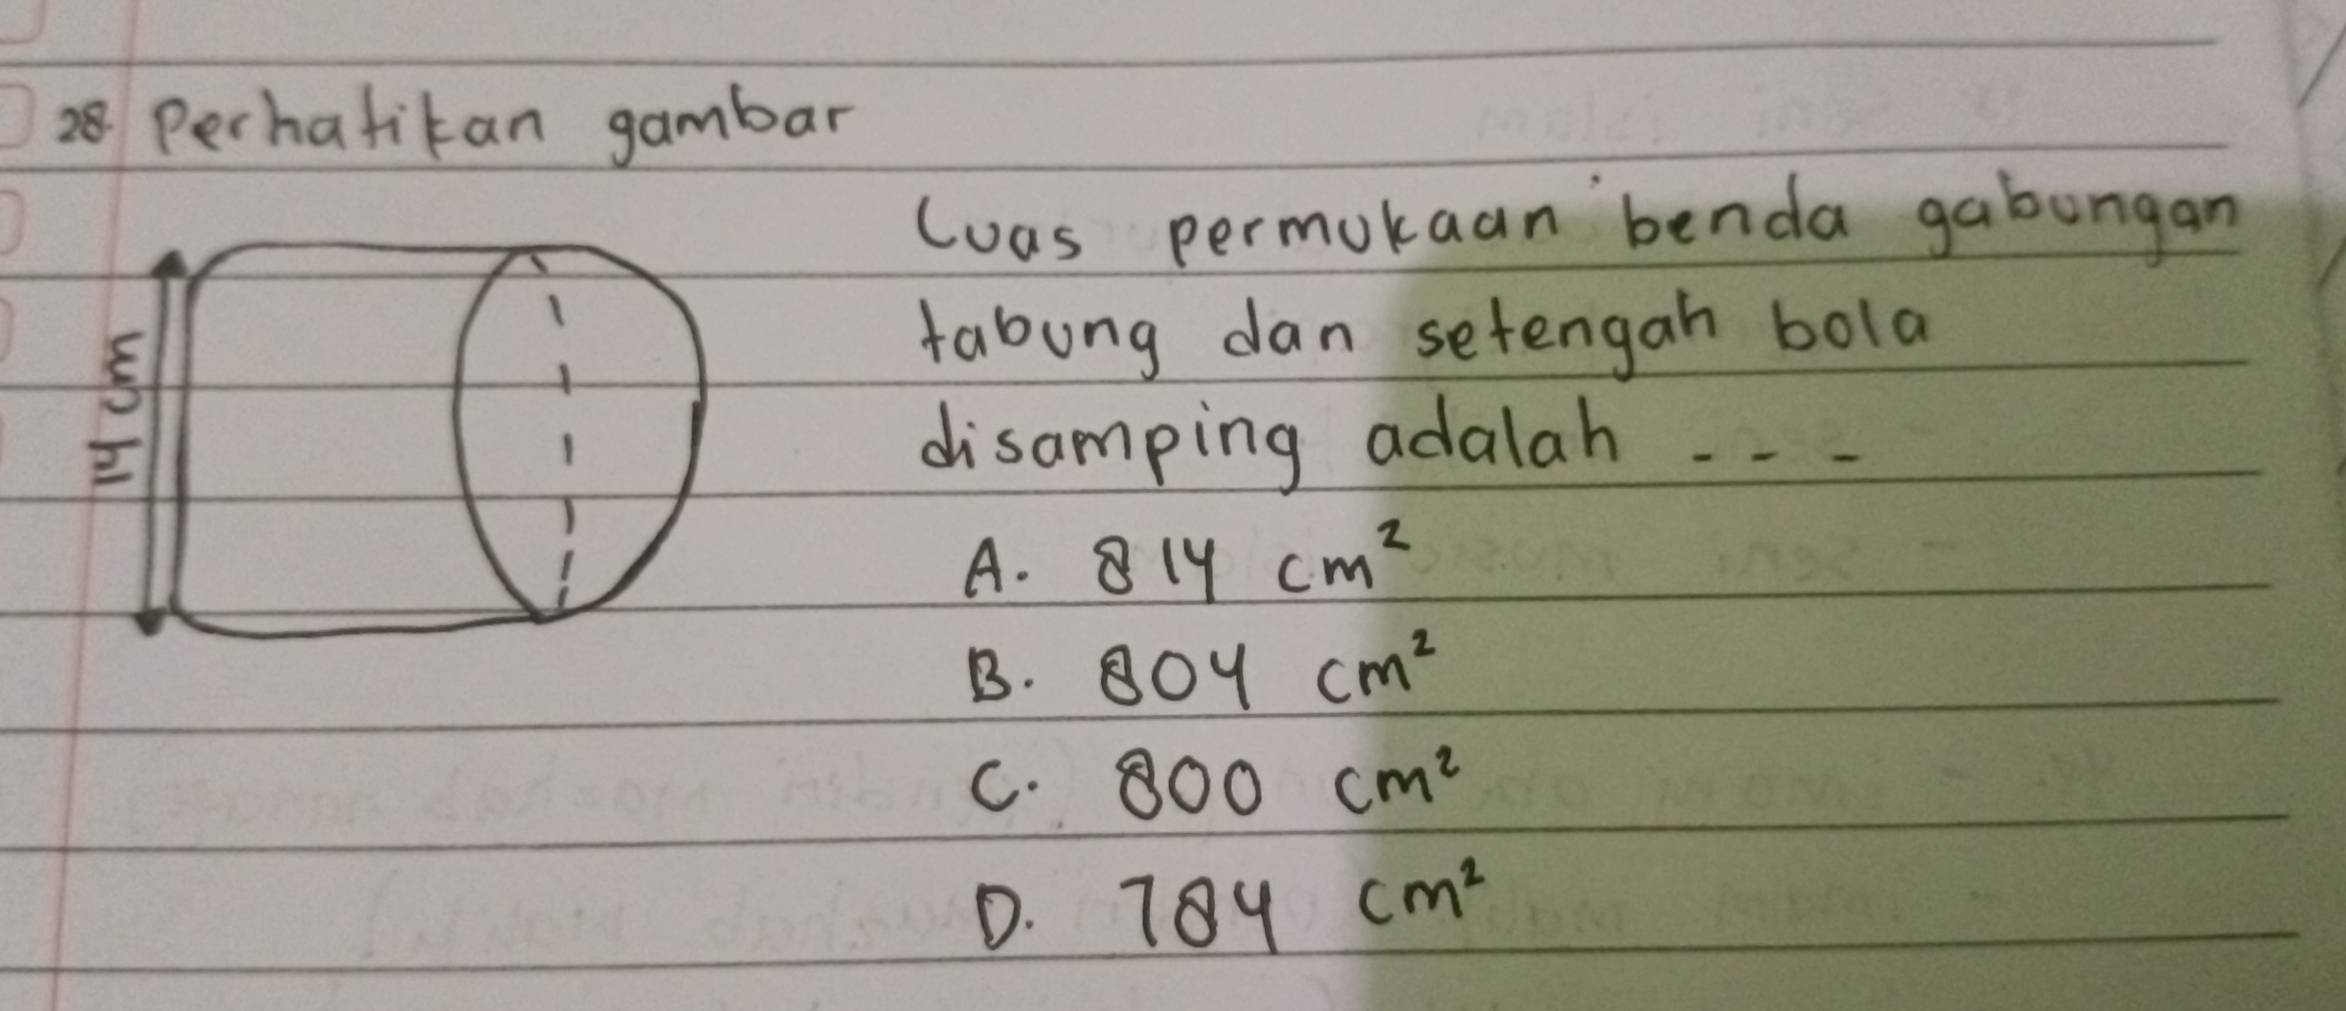 28. Perhatikan gambar
14 cm
Luas permukaan benda gabungan
tabung dan setengah bola
disamping adalah - - -
A. 814 cm²
B. 804 cm²
C. 800 cm²
D. 784 cm²